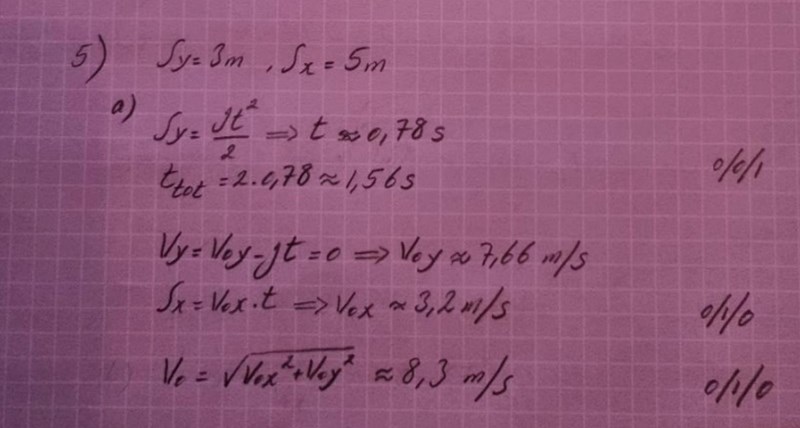 5) Sy = 3m , Sx = 5m
a) Sy = gt²/2 ⟹ t ≈ 0,78 s
t_tot = 2·0,78 ≈ 1,56 s 0/0/1
Vy = V₀y - gt = 0 ⟹ V₀y ≈ 7,66 m/s
Sx = V₀x · t ⟹ V₀x ≈ 3,2 m/s 0/1/0
V₀ = √(V₀x² + V₀y²) ≈ 8,3 m/s 0/1/0